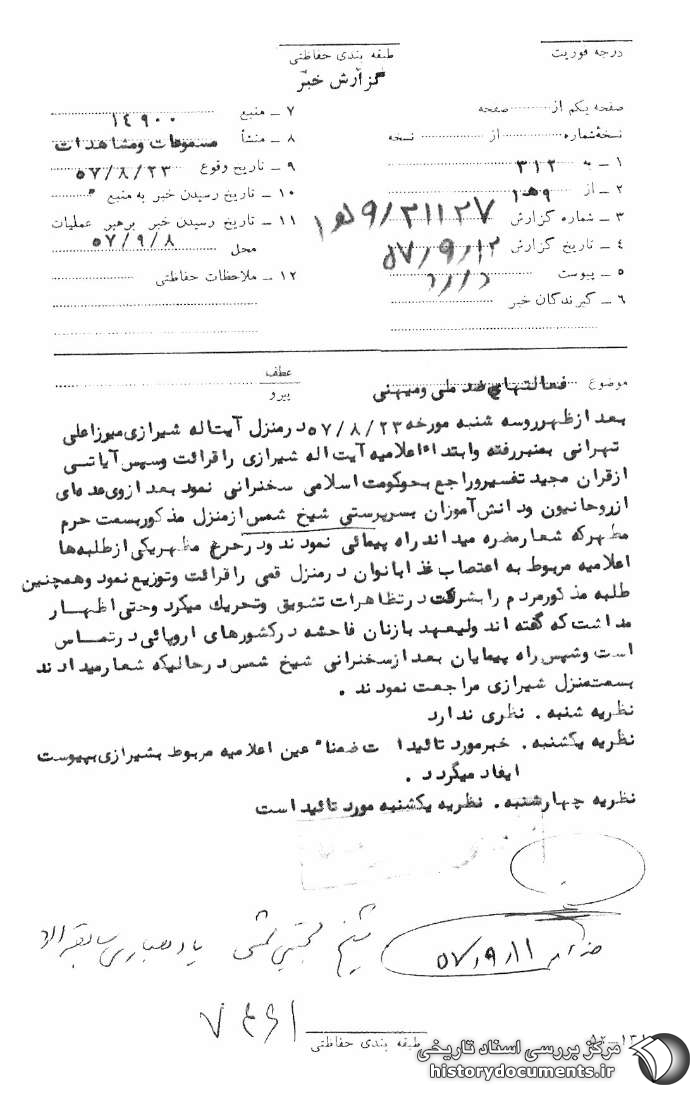 درجه فوریت
طبقه بندی حفاظتی
گزارش خبر
صفحه یکم از صفحه
نسخه‌شماره از نسخه
۱ ـ به ۳۱۲
۲ ـ از ۹ه۱
۳ ـ شماره گزارش ۹/۲۱۱۲۷ه۱
۴ ـ تاریخ گزارش ۵۷/۹/۱۲
۵ ـ پیوست دارد
۶ ـ گیرندگان خبر
۷ ـ منبع ۱۴۹۰۰
۸ ـ منشأ مسموعات ومشاهدات
۹ ـ تاریخ وقوع ۵۷/۸/۲۳
۱۰ ـ تاریخ رسیدن خبر به منبع
۱۱ ـ تاریخ رسیدن خبر برهبر عملیات
محل ۵۷/۹/۸
۱۲ ـ ملاحظات حفاظتی
موضوع فعالتهای ضد ملی ومیهنی
عطف
پیرو
بعد ازظهرروسه شنبه مورخه ۵۷/۸/۲۳ درمنزل آیت‌اله شیرازی میرزاعلی
تهرانی بمنبررفته وابتداء اعلامیه آیت اله شیرازی را قرائت وسپس آیاتی
ازقران مجید تفسیروراجع بحوکومت اسلامی سخنرانی نمود بعد ازوی عده ای
ازروحانیون ودانش‌آموزان بسرپرستی شیخ شمس ازمنزل مذکوربسمت حرم
مطهرکه شعارمضره میداند راه پیمائی نمودند ودرحرم مطهریکی ازطلبه‌ها
اعلامیه مربوط به اعتصاب غذا بانوان درمنزل قمی را قرائت وتوزیع نمود وهمچنین
طلبه مذکورمردم را بشرکت درتظاهرات تشویق وتحریك میکرد وحتی اظهار
مداشت که گفته اند ولیعهد بازنان فاحشه درکشورهای اروپائی درتماس
است وسپس راه پیمایان بعد ازسخنرانی شیخ شمس درحالیکه شعارمیدادند
بسمت‌منزل شیرازی مراجعت نمودند .
نظریه شنبه . نظری ندارد
نظریه یکشنبه . خبرمورد تائیدا ت ضمنا" عین اعلامیه مربوط بشیرازی بپیوست
ایفاد میگردد .
نظریه چهارشنبه . نظریه یکشنبه مورد تائید است
۵۷/۹/۱۱
شیخ مجتبی شمس
طبقه بندی حفاظتی
مرکز بررسی اسناد تاریخی
historydocuments.ir